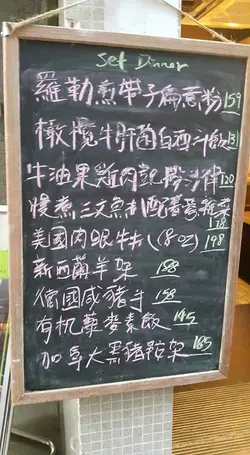 Set Dinner
羅勒煎帶子扁意粉 159
橄欖牛肝菌白西汁飯
牛油果雞肉 沙律 120
慢煮三文魚配 蔬菜
178
美國肉眼牛扒 (8oz) 198
新西蘭羊架 188
德國咸豬手 158
有机藜麥素飯 145
加拿大黑豬鞍架 185